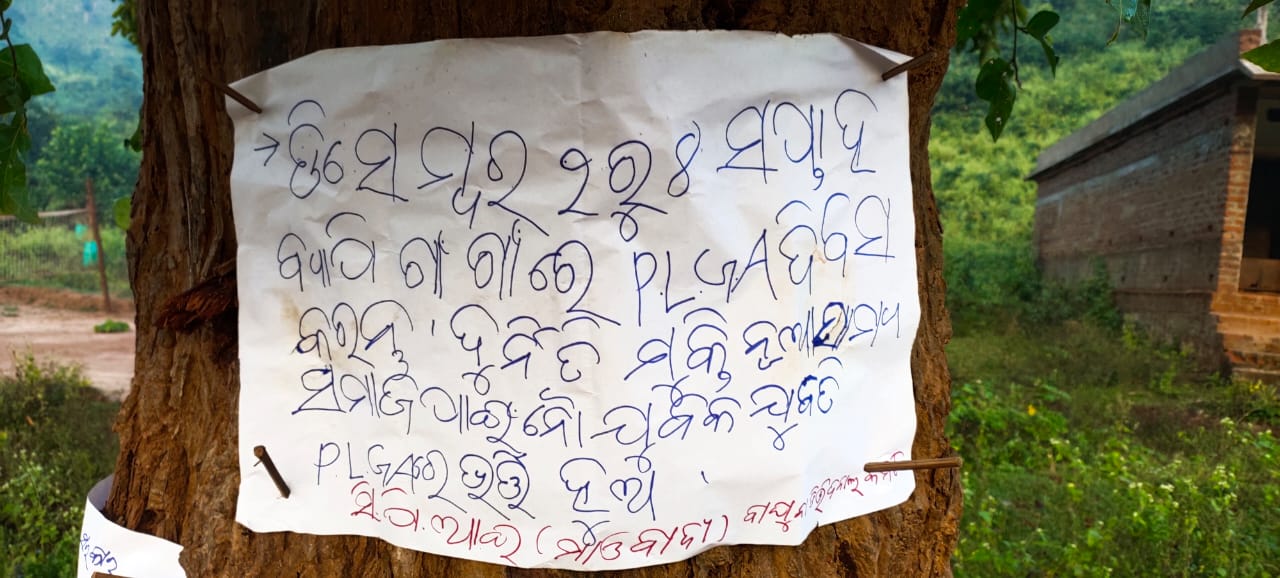 → ଡିସେମ୍ବର ୨ ରୁ ୫ ସପ୍ତାହ
ବ୍ୟାପି ଗାଁ ଗାଁରେ PLGA ଦିବସ
କରନ୍ତୁ । ଦୁର୍ନିତି ମୁକ୍ତି ନୂଆ
ସମାଜ ପାଇଁ ନୌ ଯୁବକ ଯୁବତି
PLGA ରେ ଭର୍ତ୍ତି ହୁଅ ।
ସି.ପି.ଆଇ (ମାଓବାଦୀ)